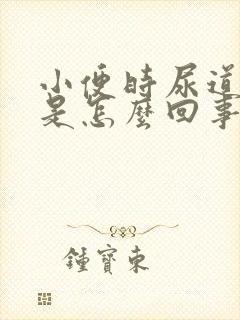 小便时尿道
是怎麼回事
鍾寶東